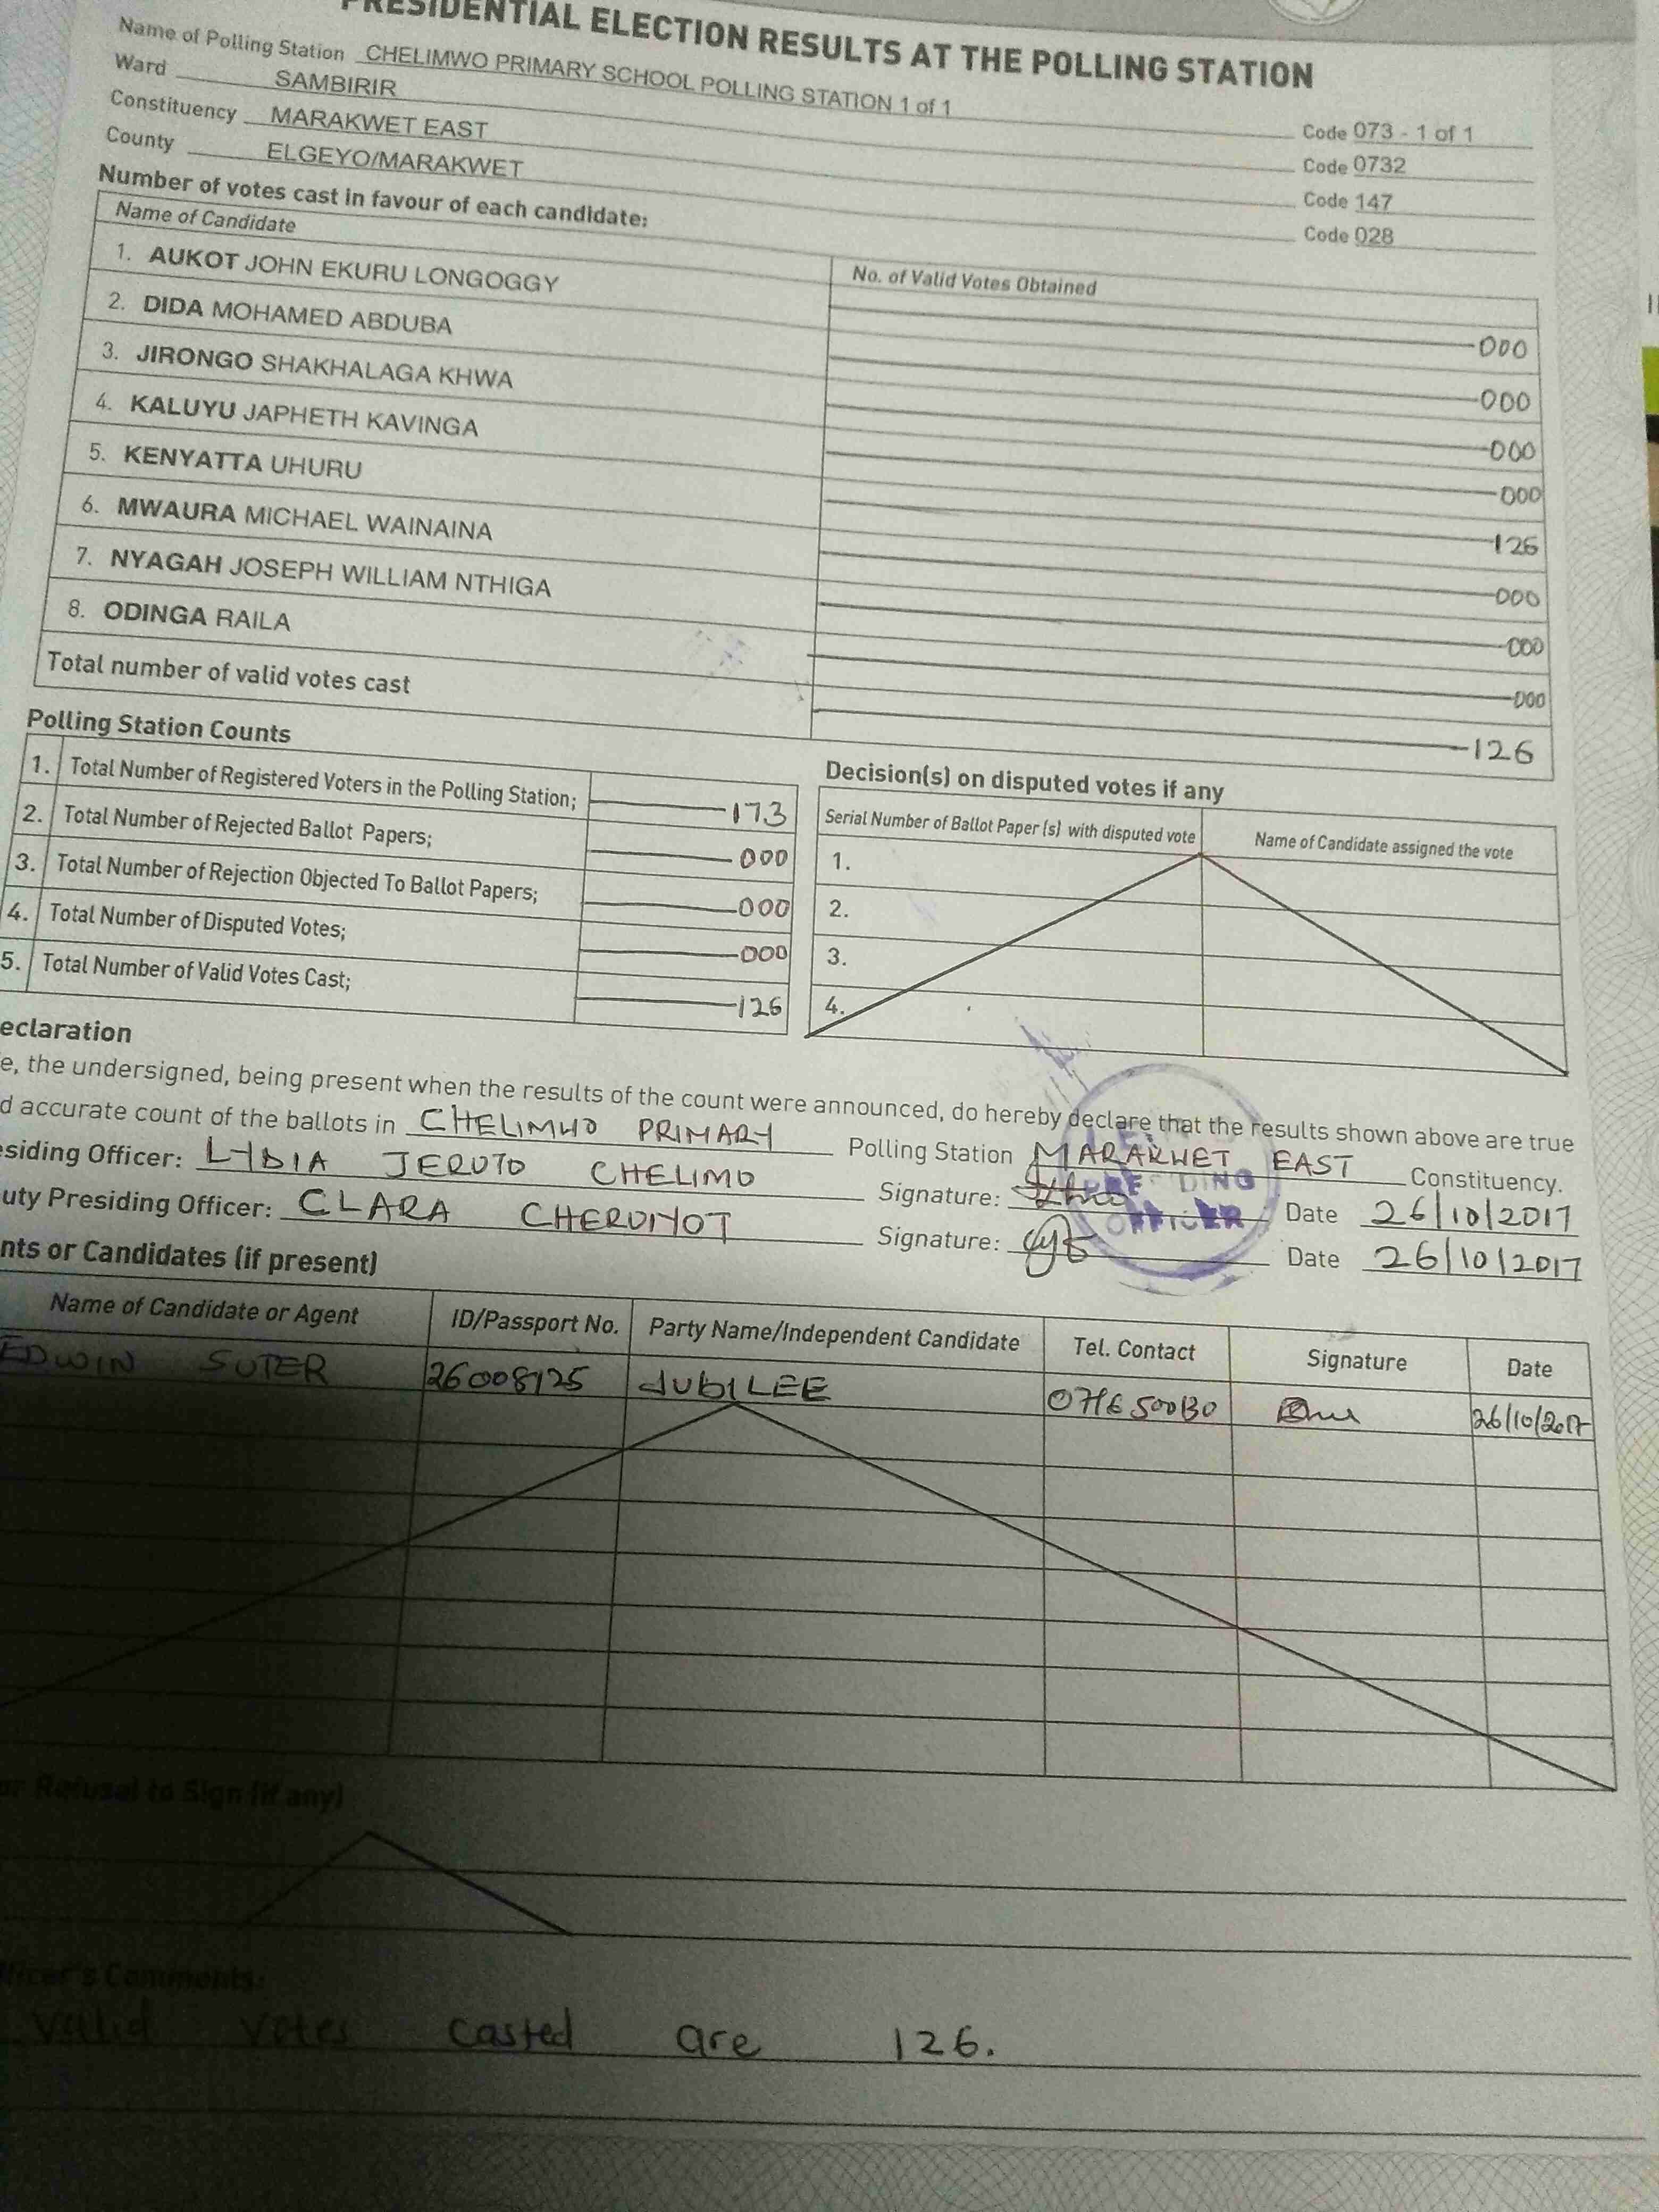 PRESIDENTIAL ELECTION RESULTS AT THE POLLING STATION
Name of Polling Station CHELIMWO PRIMARY SCHOOL POLLING STATION 1 of 1 Code 073 - 1 of 1
Ward SAMBIRIR Code 0732
Constituency MARAKWET EAST Code 147
County ELGEYO/MARAKWET Code 028
Number of votes cast in favour of each candidate:
Name of Candidate No. of Valid Votes Obtained
1. AUKOT JOHN EKURU LONGOGGY 000
2. DIDA MOHAMED ABDUBA 000
3. JIRONGO SHAKHALAGA KHWA 000
4. KALUYU JAPHETH KAVINGA 000
5. KENYATTA UHURU 126
6. MWAURA MICHAEL WAINAINA 000
7. NYAGAH JOSEPH WILLIAM NTHIGA 000
8. ODINGA RAILA 000
Total number of valid votes cast 126
Polling Station Counts
1. Total Number of Registered Voters in the Polling Station; 173
2. Total Number of Rejected Ballot Papers; 000
3. Total Number of Rejection Objected To Ballot Papers; 000
4. Total Number of Disputed Votes; 000
5. Total Number of Valid Votes Cast; 126
Decision(s) on disputed votes if any
Serial Number of Ballot Paper (s) with disputed vote Name of Candidate assigned the vote
1.
2.
3.
4.
eclaration
e, the undersigned, being present when the results of the count were announced, do hereby declare that the results shown above are true
d accurate count of the ballots in CHELIMWO PRIMARY Polling Station MARAKWET EAST Constituency.
esiding Officer: LYDIA JERUTO CHELIMO Signature: Date 26/10/2017
uty Presiding Officer: CLARA CHERUIYOT Signature: Date 26/10/2017
PRESIDING
OFFICER
nts or Candidates (if present)
Name of Candidate or Agent ID/Passport No. Party Name/Independent Candidate Tel. Contact Signature Date
EDWIN SUTER 26008125 JUBILEE 26/10/2017
or Refusal to Sign (if any)
ficer's Comments:
Valid votes casted are 126.